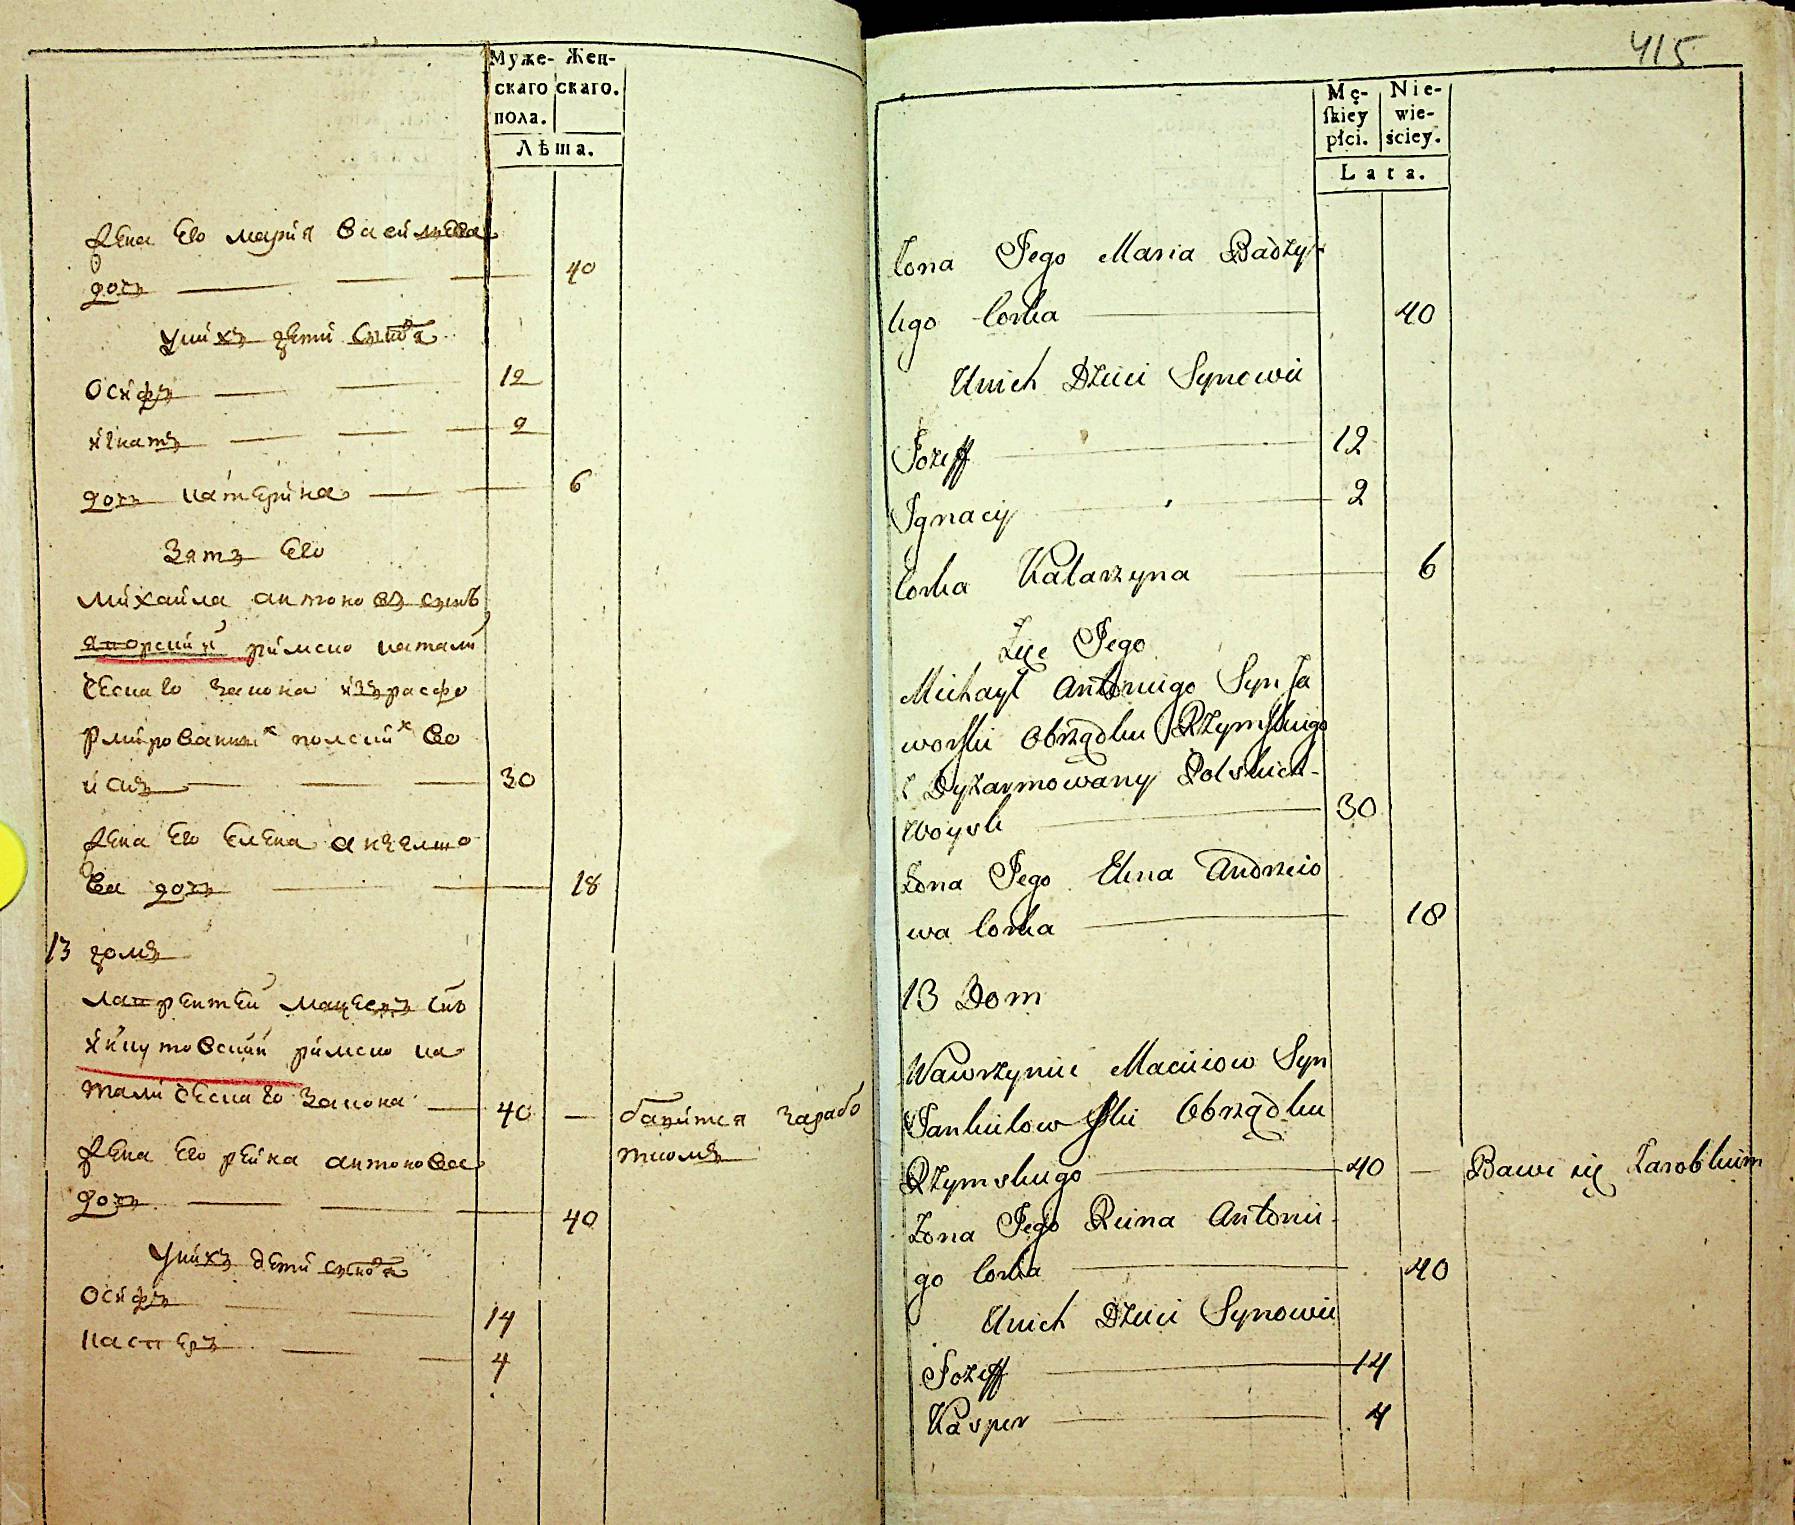 Муже- Жен-
скаго скаго.
пола.
Лѣта.
жена его мария василева
дочъ 40
унихъ дети сынова
осифъ 12
игнатъ 2
дочъ катерина 6
зятъ его
михайла антоновъ сынъ
яворский римско катали
ческаго закона изъ расфо
рмированних полских во
искъ 30
жена его елена
ва дочъ 18
13 домъ
лаврентей мацеевъ снъ
римско ка
талическаго закона 40 — бавится зарабо
ткомъ
жена его реина антонова
дочъ 40
унихъ дети сынова
осифъ 14
касперъ 4
415
Mę- Nie-
ſkiey wie-
płci. ściey.
Lata.
Żona Jego Maria Badzy-
lego Corka 40
Unich Dzieci Synowie
Jozeff 12
Ignacy 2
Corka Katarzyna 6
Zięć Jego
Michaył Antoniego Syn Ja
worſki Obrządku Rzymſkiego
z Dyzarmowany Polskich
Woysk 30
Żona Jego Elena Andrzeio
wa Corka 18
13 Dom
Wawrzyniec Macieiow Syn
Jankielowſki Obrządku
Rzymskiego 40 — Bawi się Zarobkiem
Żona Jego Reina Antonie-
go Corka 40
Unich Dzieci Synowie
Jozeff 14
Kasper 4